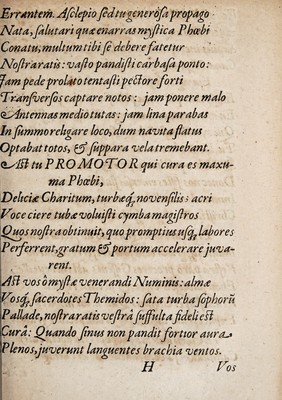 Errantem. Asclepio sed tu generosa propago
Nata, salutari quæ enarras mystica Phœbi
Conatu, multum tibi se debere fatetur
Nostra ratis: vasto pandisti carbasa ponto:
Jam pede prolato tentasti pectore forti
Transversos captare notos: jam ponere malo
Antennas medio tutas: jam lina parabas
In summo religare loco, dum navita flatus
Optabat totos, & suppara vela tremebant.
Ast tu PROMOTOR qui cura es maxu-
ma Phœbi,
Deliciæ Charitum, turbæq́, novensilis: acri
Voce ciere tubæ voluisti cymba magistros
Quos nostra obtinuit, quo promptius usq́, labores
Perferrent, gratum & portum accelerare juva-
rent.
Ast vos ô mystæ venerandi Numinis: almæ
Vosq́, sacerdotes Themidos: sata turba sophorũ
Pallade, nostra ratis vestrâ suffulta fideli est
Curâ: Quando sinus non pandit fortior aura
Plenos, juverunt languentes brachia ventos.
H Vos